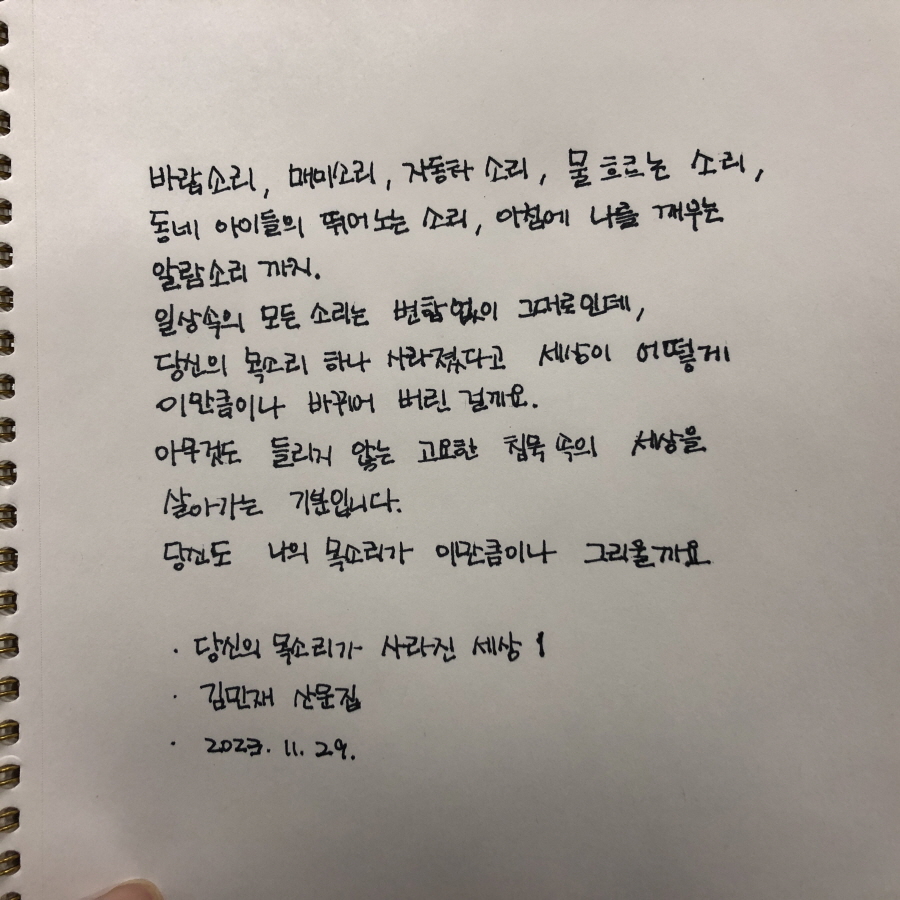 바람소리, 매미소리, 자동차 소리, 물 흐르는 소리,
동네 아이들의 뛰어노는 소리, 아침에 나를 깨우는
알람소리 까지.
일상속의 모든 소리는 변함없이 그대로인데,
당신의 목소리 하나 사라졌다고 세상이 어떻게
이만큼이나 바뀌어 버린 걸까요.
아무것도 들리지 않는 고요한 침묵 속의 세상을
살아가는 기분입니다.
당신도 나의 목소리가 이만큼이나 그리울까요
· 당신의 목소리가 사라진 세상 1
· 김민재 산문집
· 2023. 11. 29.